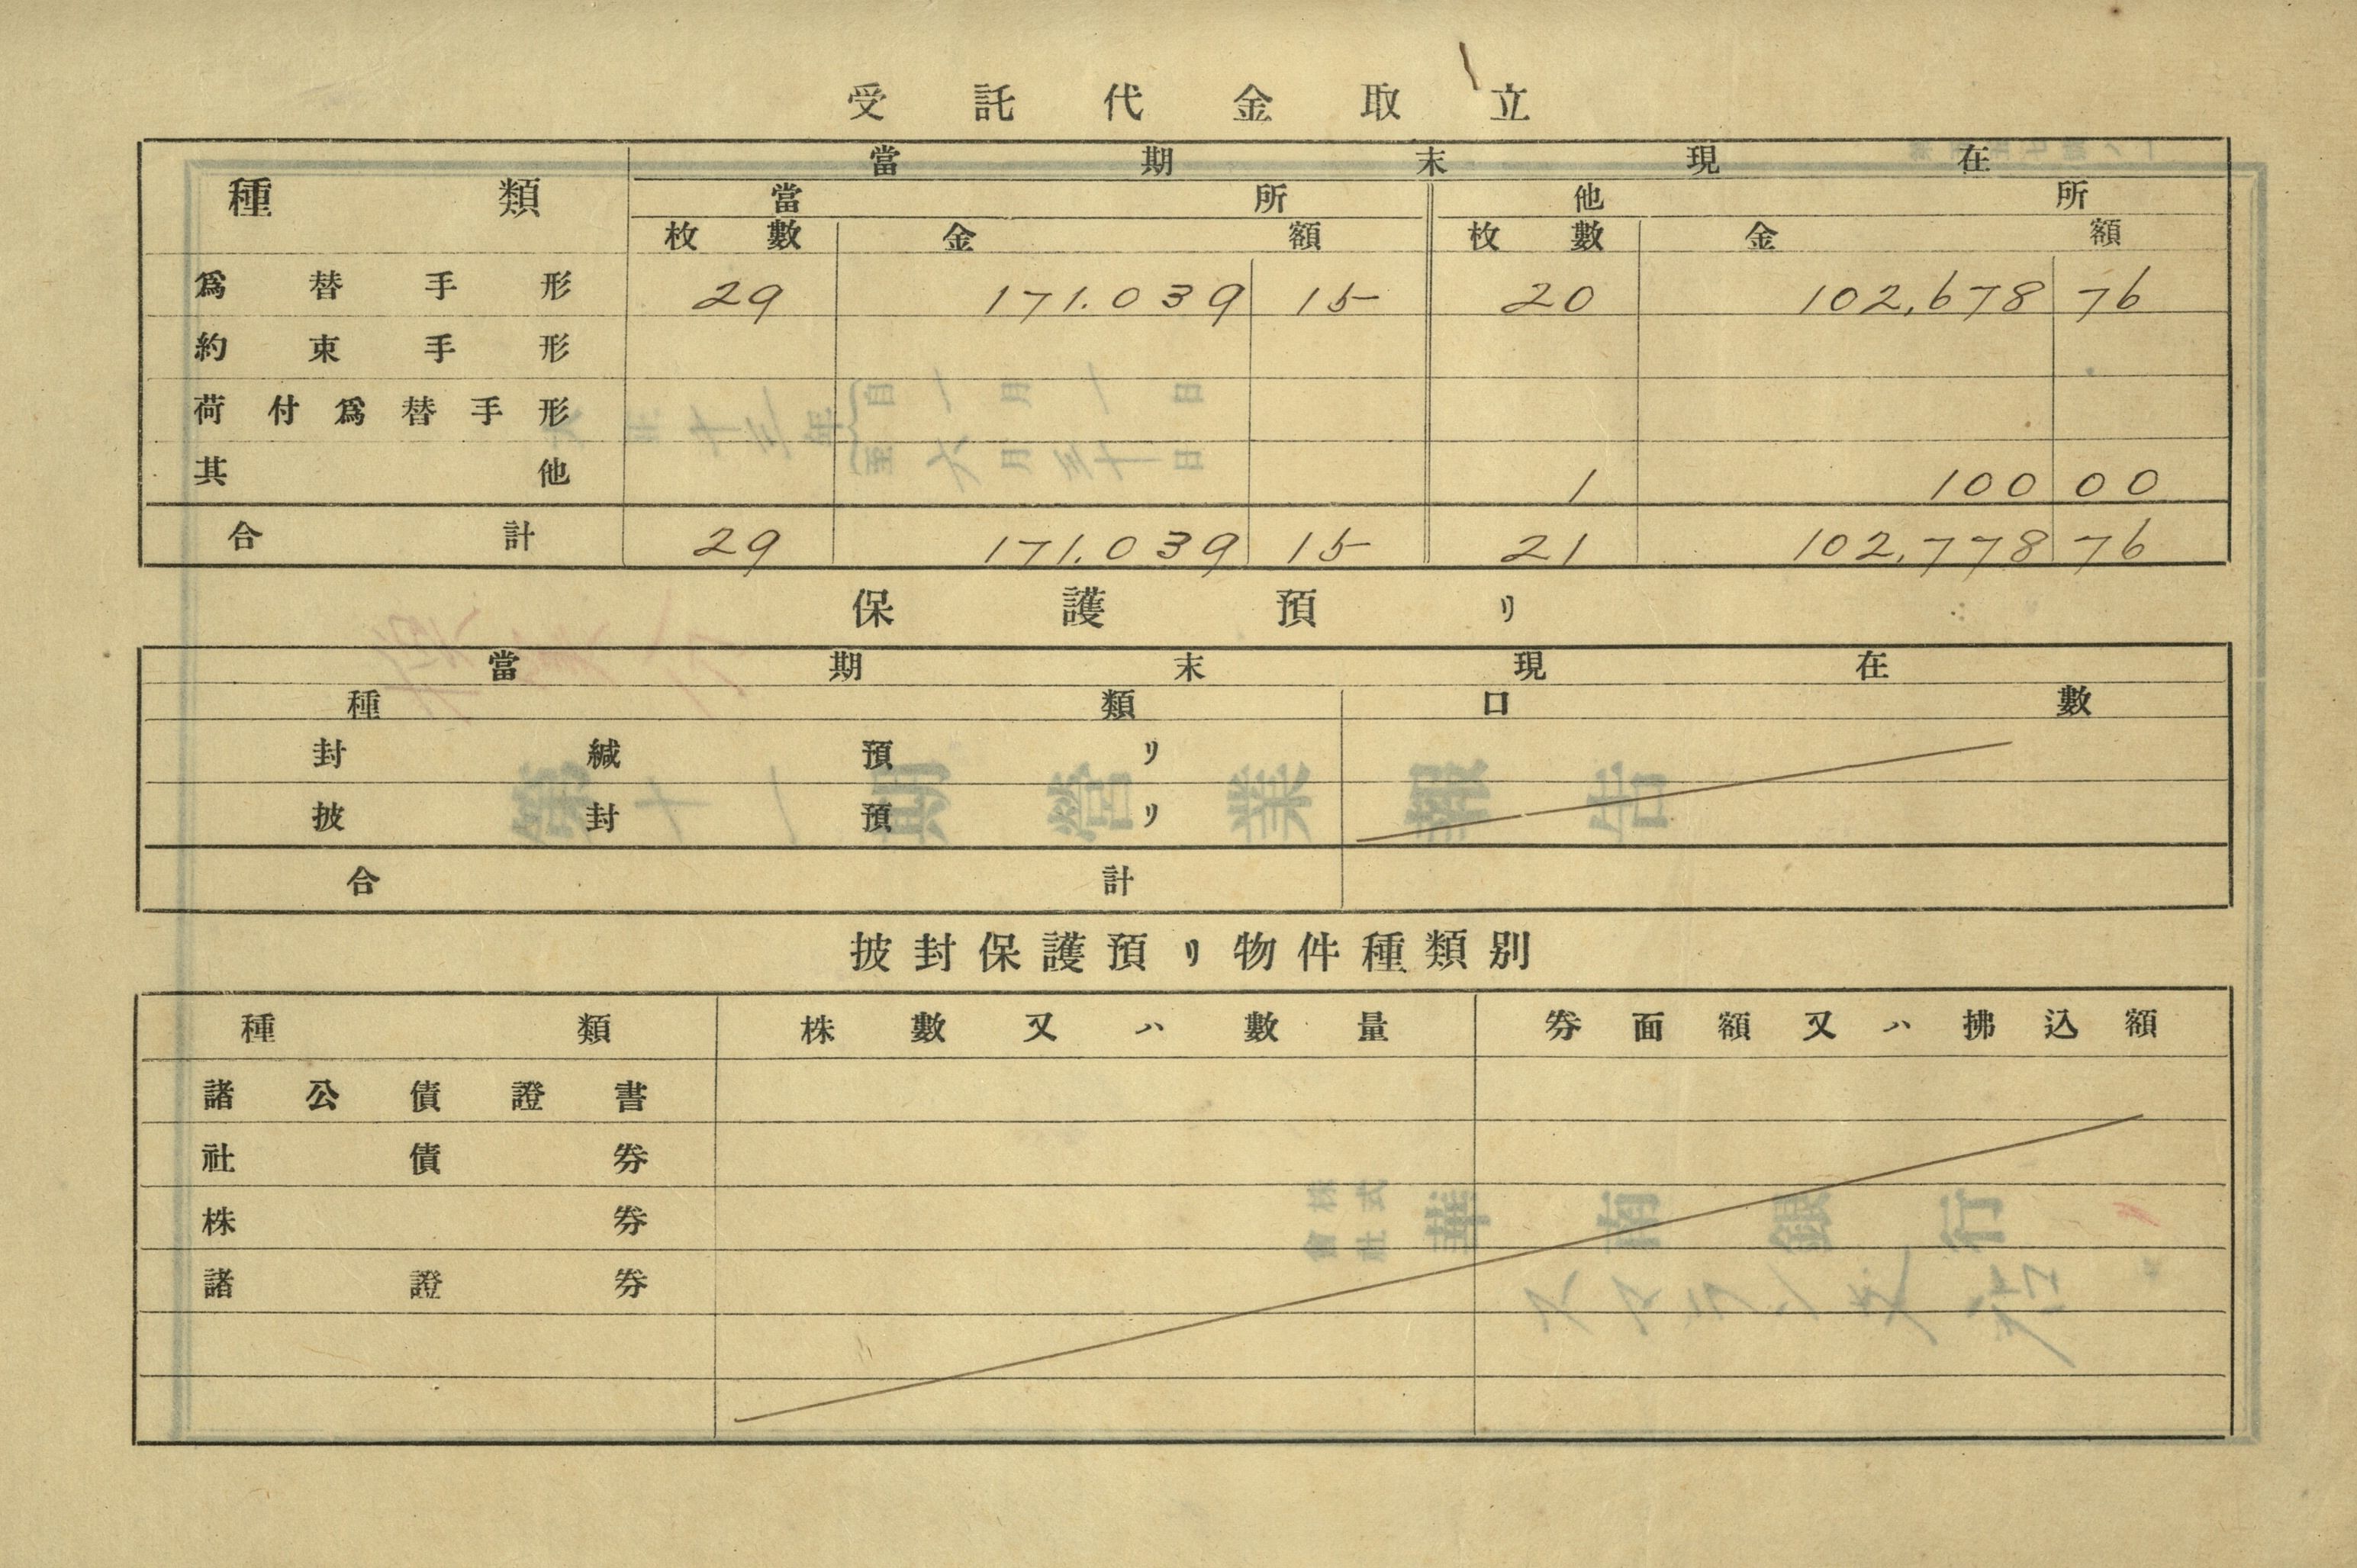 受託代金取立
種類 當期末現在
當所 他所
枚數 金額 枚數 金額
爲替手形 29 171.039 15 20 102,678 76
約束手形
荷付爲替手形
其他 1 100 00
合計 29 171.039 15 21 102,778 76
保護預リ
當期末現在
種類 口數
封緘預リ
披封預リ
合計
披封保護預リ物件種類別
種類 株數又ハ數量 券面額又ハ拂込額
諸公債證書
社債券
株券
諸證券
第十一期營業報告
株式會社華南銀行